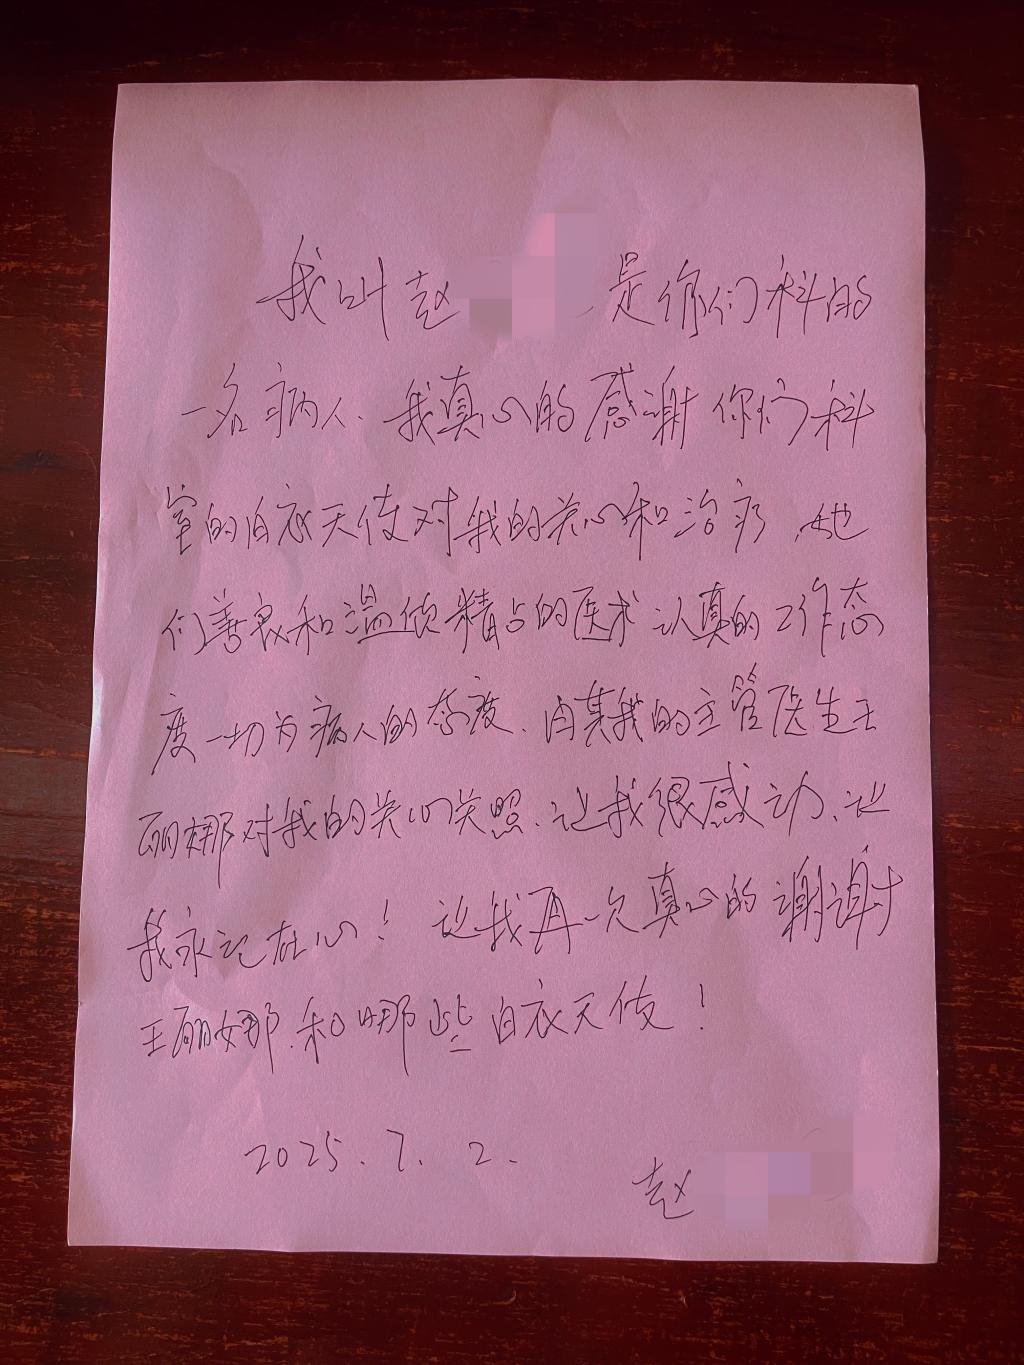 我叫赵 是你们科的
一名病人、我真心的感谢你们科
室的白衣天使对我的关心和治疗、她
们善良和温 精占的医术认真的工作态
度一切为病人的态度、由其我的主管医生王
丽娜对我的关心关照、让我很感动、让
我永记在心！让我再一次真心的谢谢
王丽娜、和哪些白衣天使！
2025.7.2.
赵